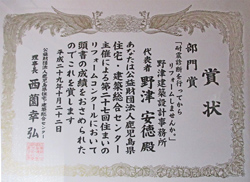 賞状
部門賞
「耐震診断を行ってから
リフォームしませんか。」
野津建築設計事務所
代表者 野津安德殿
あなたは公益財団法人鹿児島県
住宅・建築総合センター
主催による第二十七回住まいの
リフォームコンクールにおいて
頭書の成績をおさめられた
のでこれを賞します
平成二十九年十月十二日
公益財団法人鹿児島県住宅・建築総合センター
理事長 西薗幸弘